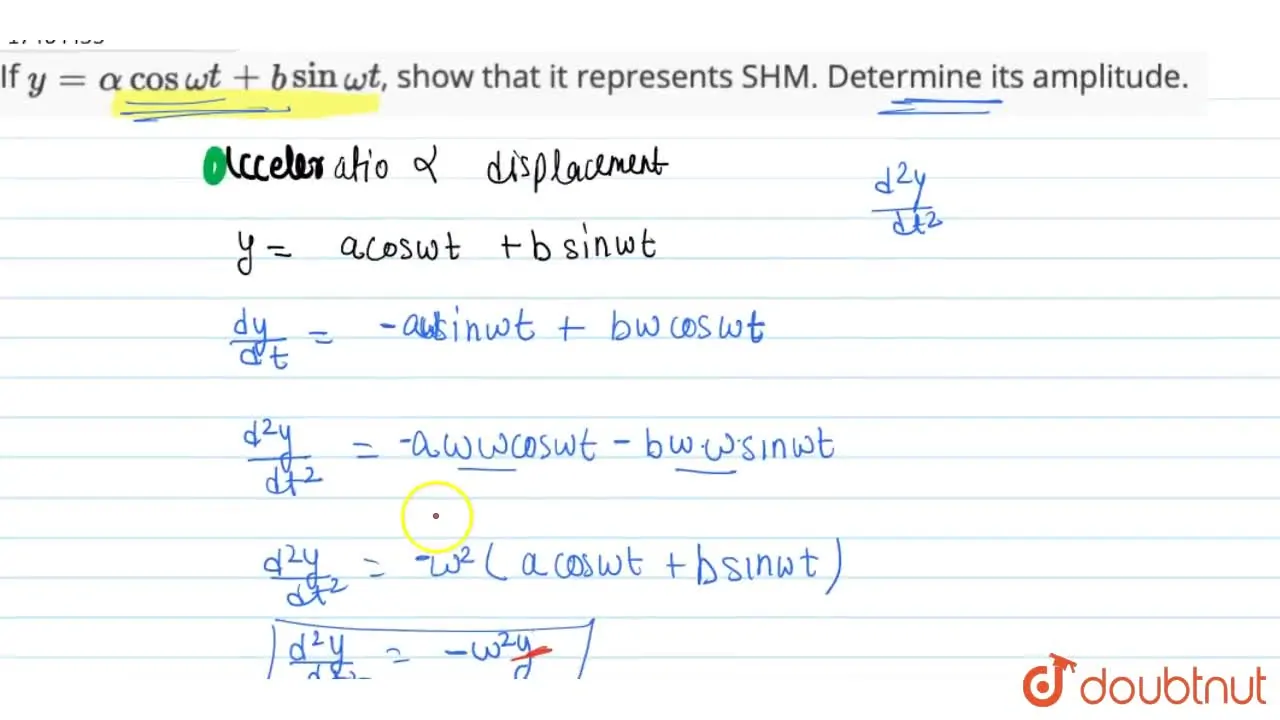 If y = α cos ωt + b sin ωt, show that it represents SHM. Determine its amplitude.
Acceleratio ∝ displacement
d²y/dt²
y = a cos ωt + b sin ωt
dy/dt = -aω sin ωt + bω cos ωt
d²y/dt² = -a ω ω cos ωt - b ω · ω · sin ωt
d²y/dt² = -ω² ( a cos ωt + b sin ωt )
d²y/dt² = -ω² y
doubtnut